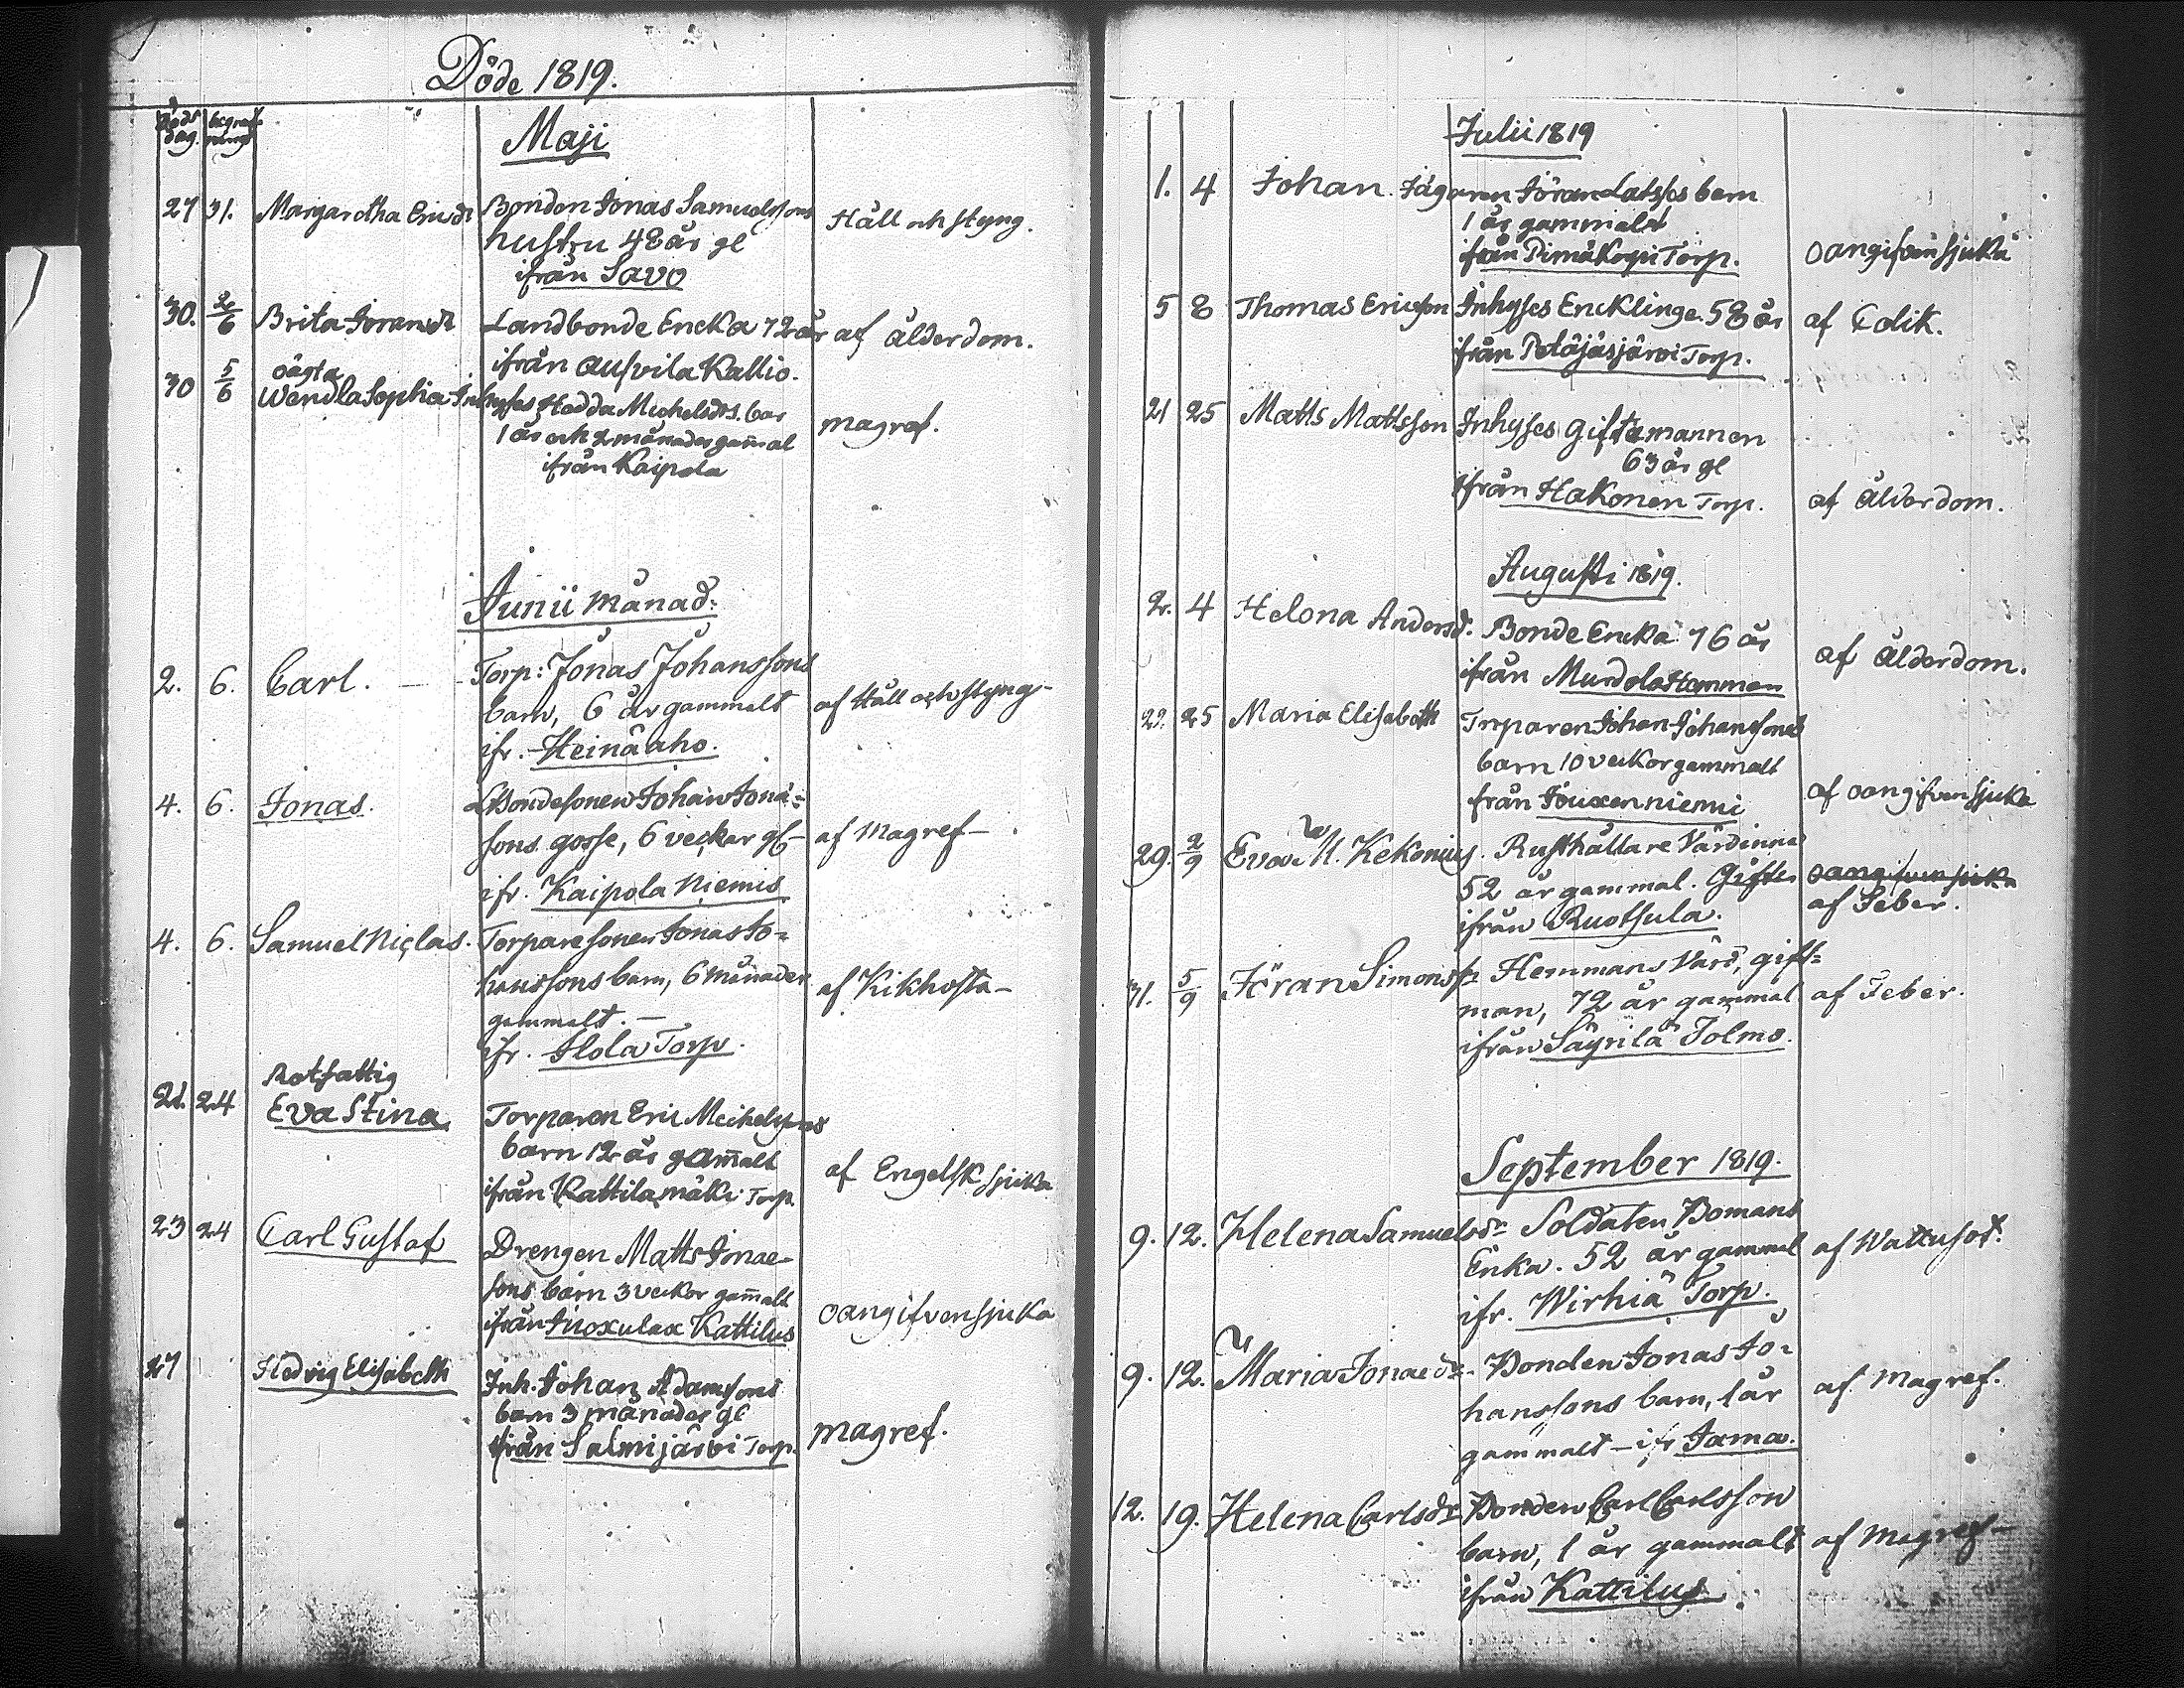 Döde 1819.
Döds dag. begrafnings
Maji
27 31. Margaretha Ericsdr Bonden Jonas Samuelssons Håll och styng.
hustru 48 år gl
ifrån Savo
30. 2/6 Brita Joransdr Landbonde Encka 72 år af ålderdom.
ifrån Ausvila Kallio.
oägta
30 5/6 Wendla Sophia Inhyses Hedda Michelsdrs. bar magref.
1 år och 2 månader gam̄al
ifrån Kaipola
Junii månad:
2. 6. Carl. — Torp: Jonas Johanssons
barn, 6 år gammalt af Håll och styng-
ifr. Heinäaho.
4. 6. Jonas. Bondesonen Johan Jonä=
sons gosse, 6 veckar gl- af Magref-
ifr. Kaipola Niemis
4. 6. Samuel Niclas. Torparesonen Jonas Jo=
hanssons barn, 6 månader af Kikhosta-
gammalt. —
ifr. Ilola Torp.
Rotfattig
21. 24 Eva Stina Torparen Eric Meichelssons
barn 12 år gam̄alt af Engelsk sjuka
ifrån Kattilamäki Torp.
23 24 Carl Gustaf Drengen Matts Jonae-
sons barn 3 veckor gam̄alt oangifven sjuka
ifrån Kattilus
27 Hedvig Elisabeth Inh. Johan Adamssons
barn 3 månader gl magref.
ifrån Salmijärvi Torp.
Julii 1819
1. 4 Johan. Jägaren Jöran Latssos barn
1 år gammalt
ifrån Pimäkorpi Torp. oangifven sjuka
5 8 Thomas Ericsson Inhyses Encklinge 58 år af Colik.
ifrån Petäjäsjärvi Torp.
21 25 Matts Mattsson Inhyses giftamannen
63 år gl
ifrån Hakonen Torp. af ålderdom.
Augusti 1819.
2. 4 Helena Andersd. Bonde Encka 76 år af ålderdom.
ifrån Murdola Hemman
22. 25 Maria Elisabeth Torparen Johan Johanssons
barn 10 veckor gammalt
från Jouxenniemi af oangifven sjuka
29. 2/9 Eva M. Kekonius. Rusthållare Värdinna
52 år gammal. Giftes oangifven sjuka
ifrån Ruotsula. af Feber.
31. 5/9 Jöran Simonss: Hemmans Värd, gift=
man, 72 år gammal af Feber.
ifrån Säyrilä Tolmo.
September 1819.
9. 12. Helena Samuelsdr Soldaten Domans
Enka. 52 år gammal af Wattusot.
ifr. Wirhiä Torp.
9. 12. Maria Jonaedr. Bonden Jonas Jo=
hanssons barn, 1 år af magref.
gammalt - ifr Jama.
12. 19. Helena Carlsdr Bonden Carl Carlsson
barn, 1 år gammalt af Magref-
ifrån Kattilus